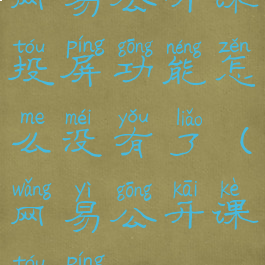 网易公开课
tóu píng gōng néng zěn
投屏功能怎
me méi yǒu liǎo
么没有了(
wǎng yì gōng kāi kè
网易公开课
tóu píng